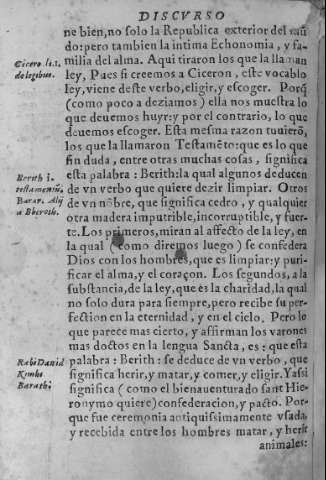 DISCVRSO
ne bien, no solo la Republica exterior del mũ
do: pero tambien la intima Echonomia, y fa-
milia del alma. Aqui tiraron los que la llaman
ley, Pues si creemos a Ciceron, este vocablo
ley, viene deste verbo, eligir, y escoger. Porq̃
(como poco a deziamos) ella nos muestra lo
que deuemos huyr: y por el contrario, lo que
deuemos escoger. Esta mesma razon tuuierõ,
los que la llamaron Testamẽto: que es lo que
sin duda, entre otras muchas cosas, significa
esta palabra: Berith: la qual algunos deducen
de vn verbo que quiere dezir limpiar. Otros
de vn nõbre, que significa cedro, y qualquier
otra madera imputrible, incorruptible, y fuer-
te. Los primeros, miran al affecto de la ley, en
la qual (como diremos luego) se confedera
Dios con los hombres, que es limpiar: y puri-
ficar el alma, y el coraçon. Los segundos, a la
substancia, de la ley, que es la charidad, la qual
no solo dura para siempre, pero recibe su per-
fection en la eternidad, y en el cielo. Pero lo
que parece mas cierto, y affirman los varones
mas doctos en la lengua Sancta, es: que esta
palabra: Berith: se deduce de vn verbo, que
significa herir, y matar, y comer, y eligir. Y assi
significa (como el bienauenturado sant Hie-
ronymo quiere) confederacion, y pacto. Por-
que fue ceremonia antiquissimamente vsada,
y recebida entre los hombres matar, y herir
animales:
Cicero li. 1.
de legibus.
Berith i.
testamentũ,
Barar. Alij
a Bheroth.
Rabi Dauid
Kymhi
Barath: